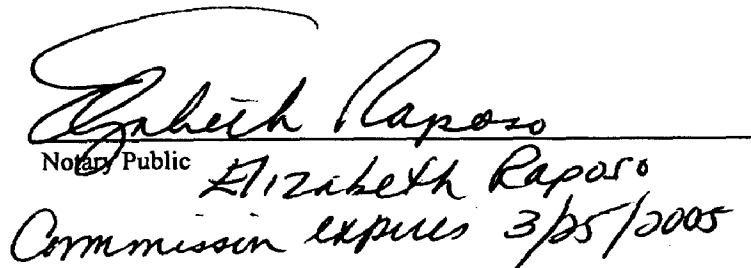 Elizabeth Raposo
Notary Public
Elizabeth Raposo
Commission expires 3/25/2005